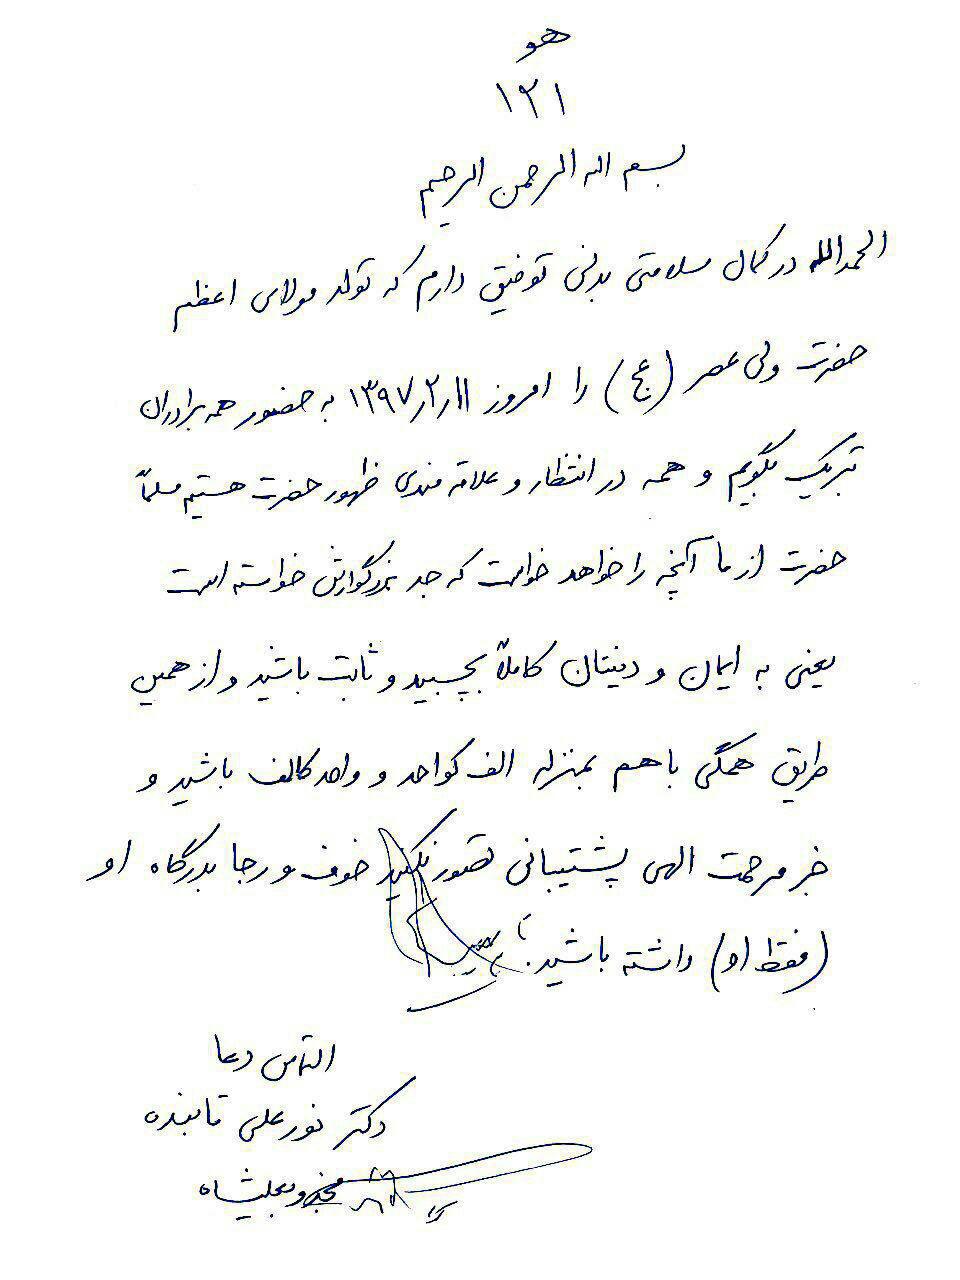 هو
۱۲۱
بسم اله الرحمن الرحیم
الحمدالله در کمال سلامتی بدنی توفیق دارم که تولد مولای اعظم
حضرت ولی عصر (عج) را امروز ۱۳۹۷ر۲ر۱۱ به حضور همه برادران
تبریک بگویم و همه در انتظار و علاقه مندی ظهور حضرت هستیم مسلماً
حضرت از ما آنچه را خواهد خواست که جد بزرگوارش خواسته است
یعنی به ایمان و دینتان کاملاً بچسبید و ثابت باشید و از همین
طریق همگی با هم بمنزله الف کواحد و واحد کالف باشید و
جز مرحمت الهی پشتیبانی تصور نکنید خوف و رجا بدرگاه او
(فقط او) داشته باشید.
التماس دعا
دکتر نورعلی تابنده
مجذوبعلیشاه